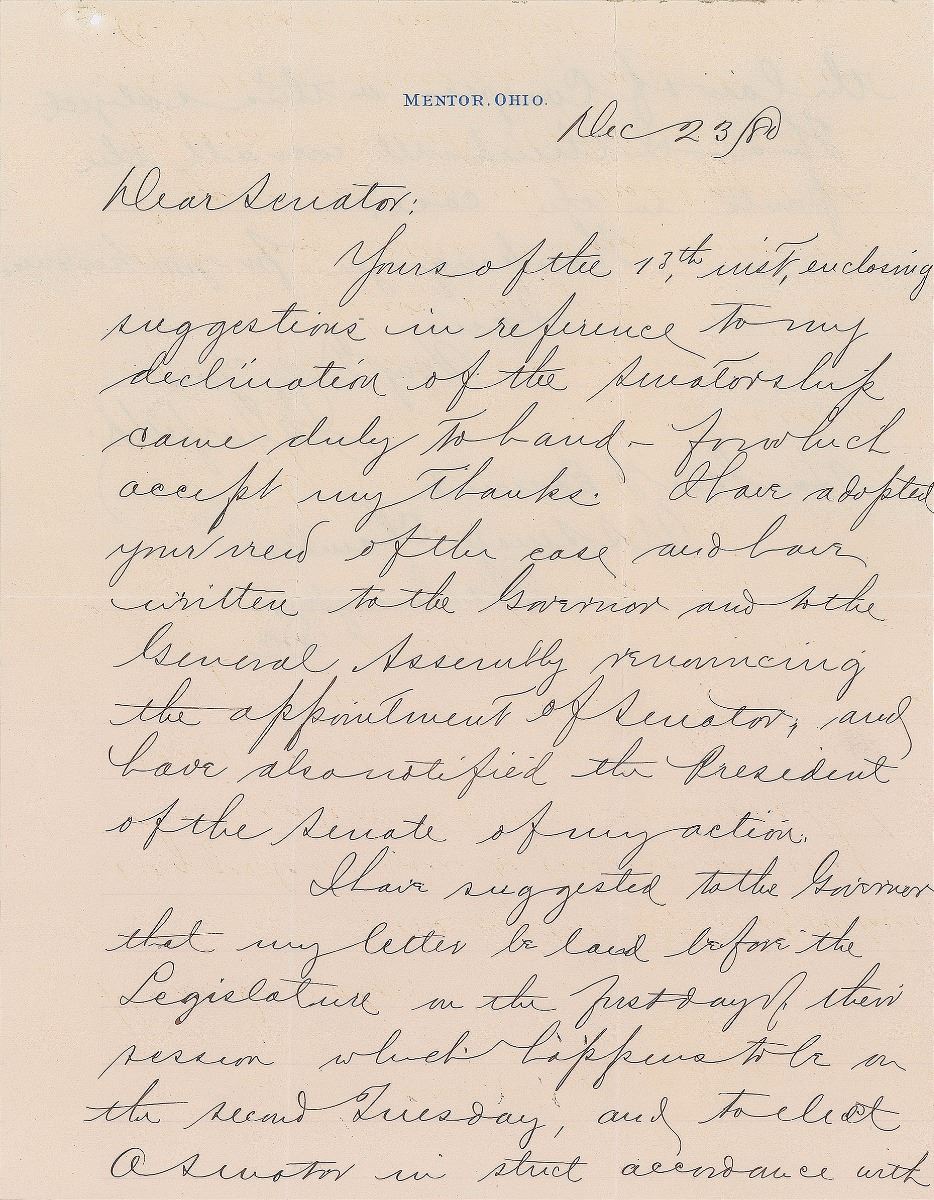 MENTOR, OHIO.
Dec 23/80
Dear Senator:
Yours of the 13th, inst, enclosing
suggestions in reference to my
declination of the Senatorship
came duly to hand – for which
accept my thanks. I have adopted
your view of the case and have
written to the Governor and to the
General Assembly renouncing
the appointment of Senator, and
have also notified the President
of the Senate of my action.
I have suggested to the Governor
that my letter be laid before the
Legislature on the first day of their
session which happens to be on
the second Tuesday, and to elect
a Senator in strict accordance with